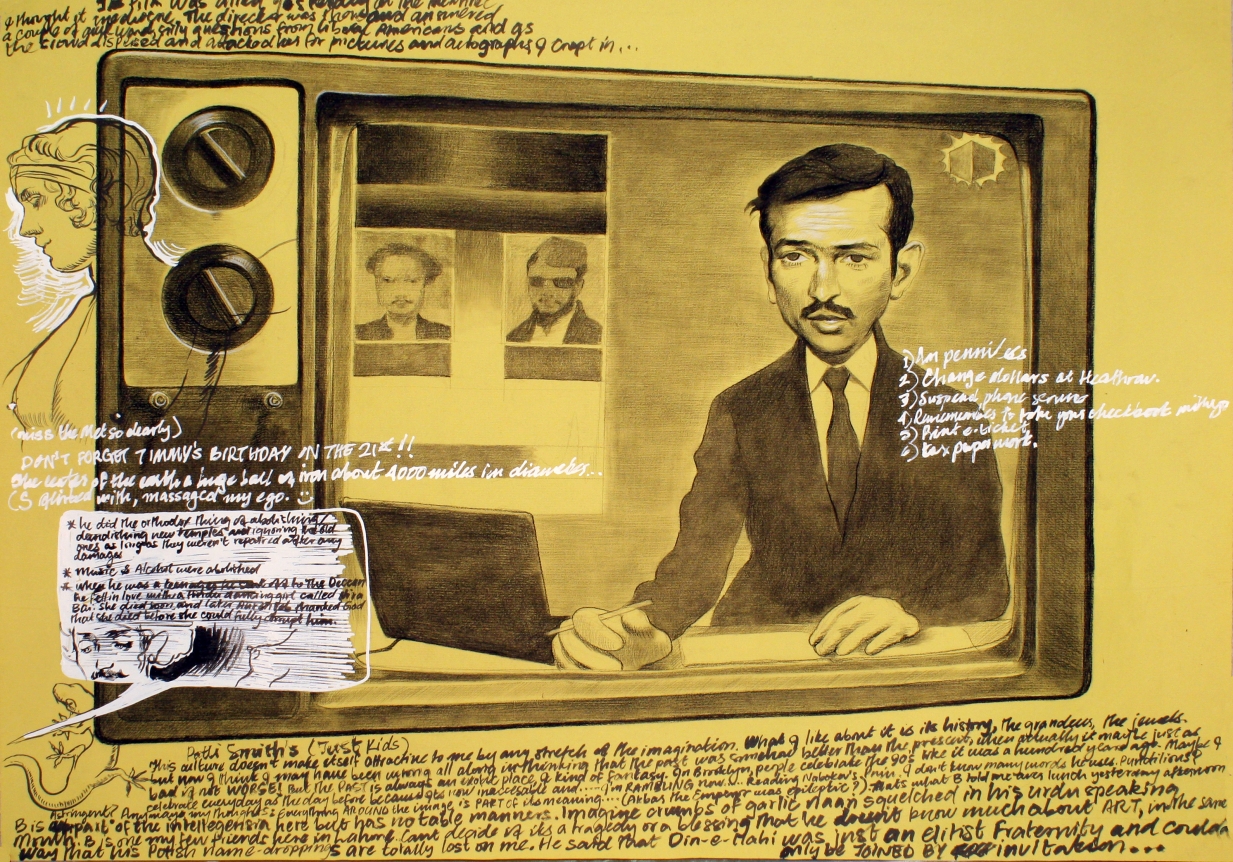 I thought it mediocre. The director was there and answered
a couple of questions from liberal Americans and as
the crowd dispersed and attacked her for pictures and autographs I crept in...
1) Am penniless
2) Change dollars at Heathrow.
3) Suspend phone service
4) Remember to take your checkbook
5) Print e-ticket
6) tax paperwork.
(miss the Met so dearly)
DON'T FORGET TIMMY'S BIRTHDAY ON THE 21st!!
The center of the earth a huge ball of iron about 4000 miles in diameter..
(S flirted with, massaged my ego. :)
* he did the orthodox thing of abolishing/
demolishing new temples and ignoring the old
ones as long as they weren't repaired after any
damages
* Music & Alcohol were abolished
* when he was a teenager he to the Deccan
he fell in love with a Hindu dancing girl called Hira
Bai. She died soon and later thanked God
that she died before she could fully corrupt him.
Patti Smith's (Just Kids)
This culture doesn't make itself attractive to me by any stretch of the imagination. What I like about it is its history, the grandeur, the jewels.
but now I think I may have been wrong all along in thinking that the past was somehow better than the present, when actually it maybe just as
bad if not WORSE! But the PAST is always another place, a kind of fantasy. In Brooklyn, people celebrate the 90s like it was a hundred years ago. Maybe I
celebrate everyday as the day before because its now inaccesable and.....(I'm RAMBLING now! Reading Nabokov's Pnin, I don't know many words
Everything AROUND the image is PART of its meaning...(Akbar the Emperor was epileptic?). That's what B told me over lunch yesterday afternoon
B is part of the intellegensia here but has no table manners. Imagine crumbs of garlic naan squelched in his urdu speaking
Mouth. B is one my few friends here in Lahore. Cant decide if its a tragedy or a blessing that he doesn't know much about ART, in the same
way that his Polish name-droppings are totally lost on me. He said that Din-e-Ilahi was just an elitist Fraternity and could
only be JOINED BY invitation...